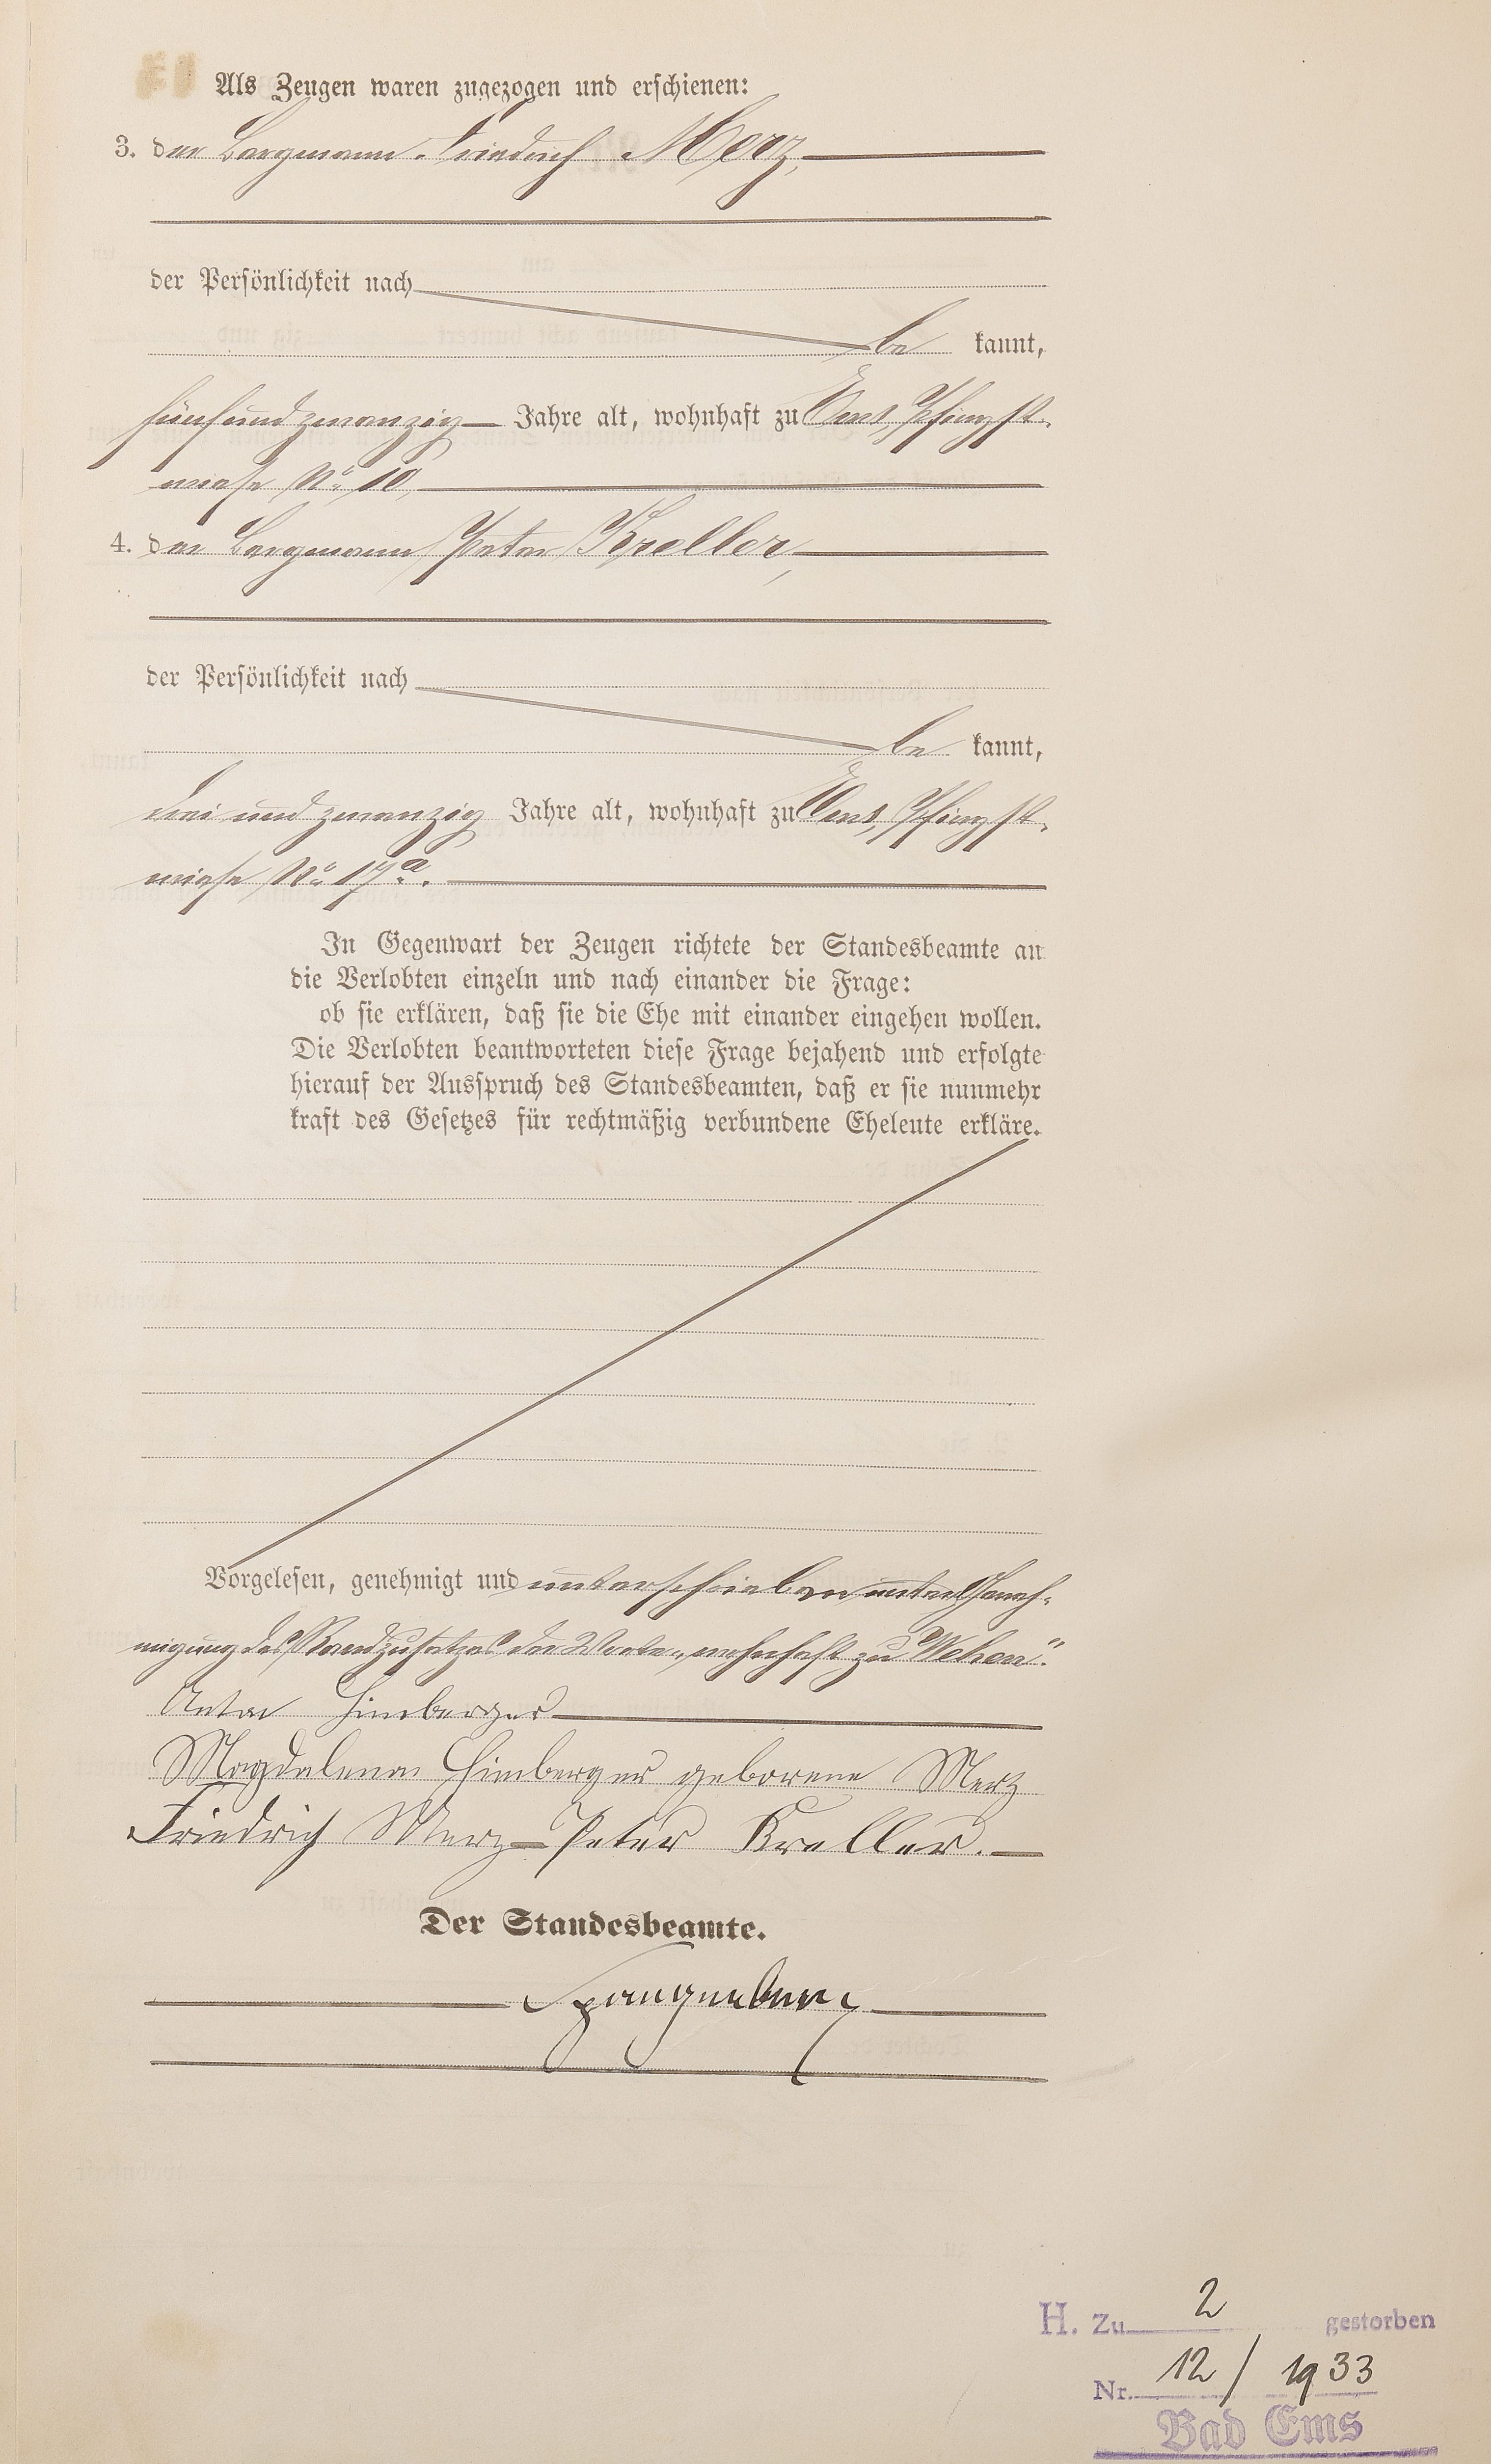 Als Zeugen waren zugezogen und erschienen:
3. der Bergmann Friedrich Merz,
der Persönlichkeit nach
be kannt,
fünfundzwanzig Jahre alt, wohnhaft zu Ems, Pfingst-
wiese No 10,
4. der Bergmann Peter Kreller,
der Persönlichkeit nach
be kannt,
drei und zwanzig Jahre alt, wohnhaft zu Ems, Pfingst-
wiese No 17a.
In Gegenwart der Zeugen richtete der Standesbeamte an
die Verlobten einzeln und nach einander die Frage:
ob sie erklären, daß sie die Ehe mit einander eingehen wollen.
Die Verlobten beantworteten diese Frage bejahend und erfolgte
hierauf der Ausspruch des Standesbeamten, daß er sie nunmehr
kraft des Gesetzes für rechtmäßig verbundene Eheleute erkläre.
Vorgelesen, genehmigt und unterschrieben unter Geneh-
migung des Randzusatzes der Worte „wohnhaft zu Wehen".
Anton Himberger
Magdalena Himberger geborene Merz
Friedrich Merz Peter Kreller.
Der Standesbeamte.
Spangenberg
H. Zu 2 gestorben
Nr. 12 / 1933
Bad Ems